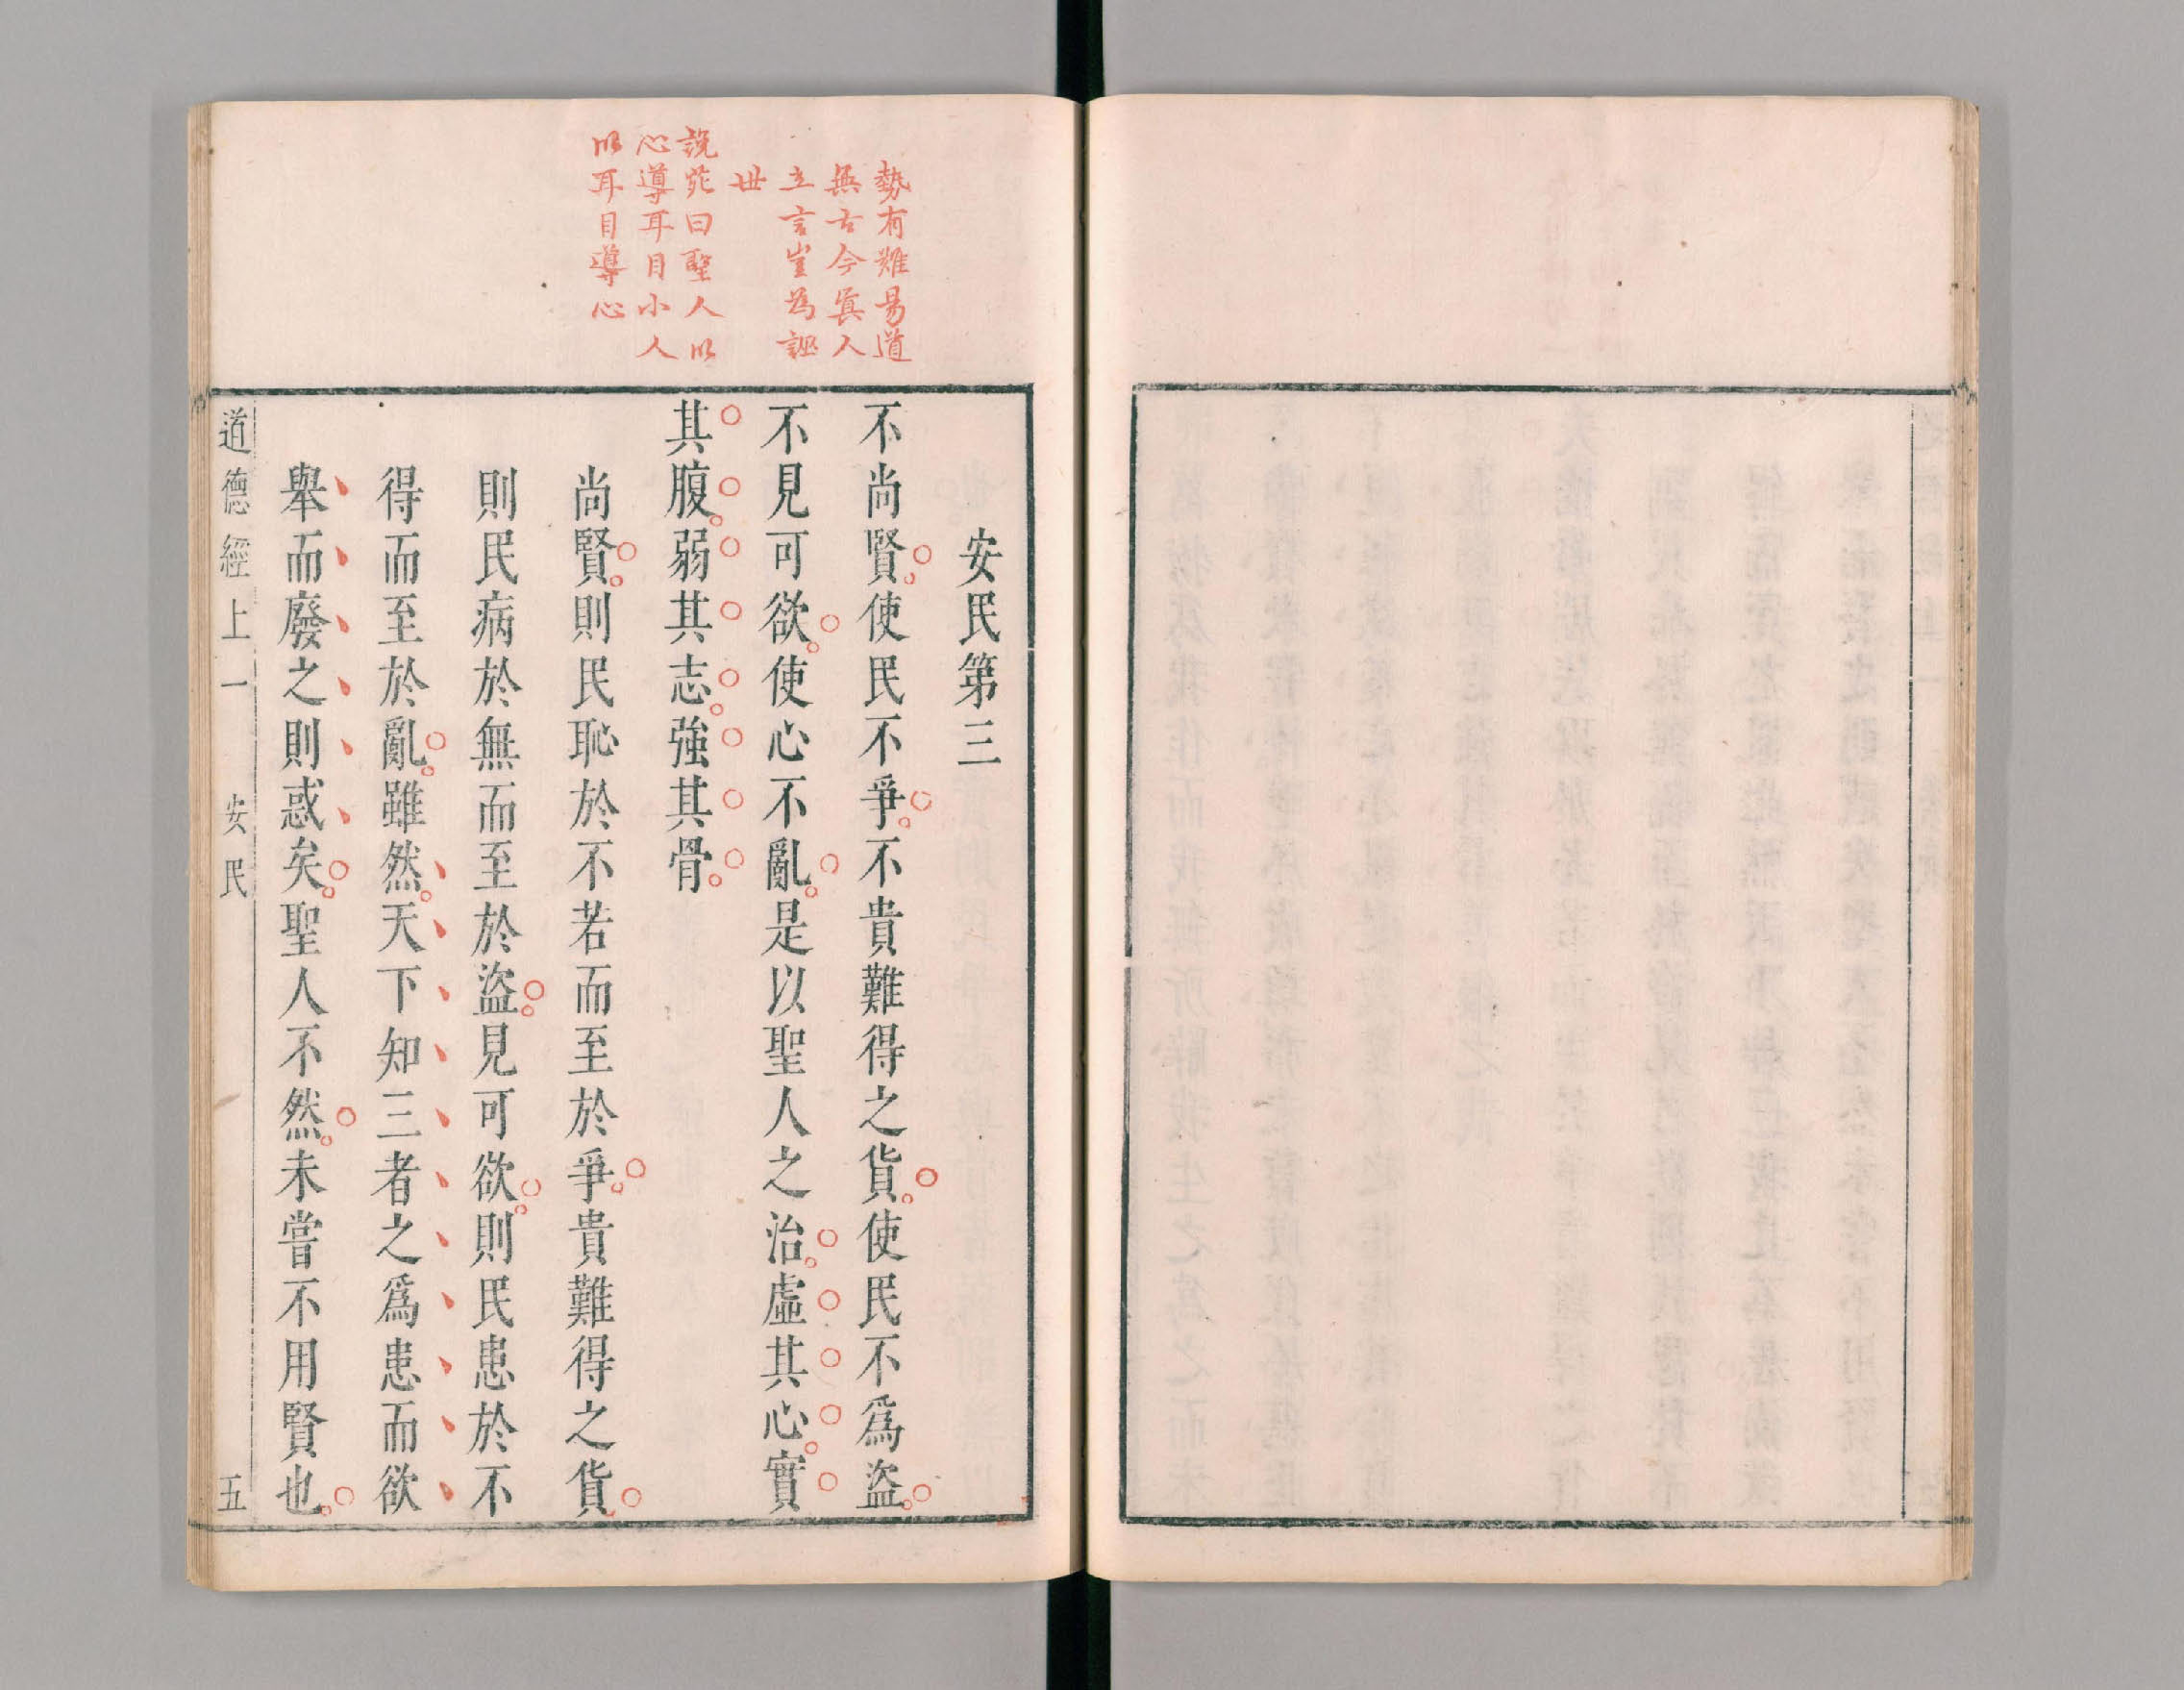 勢有難易道
無古今眞人
立言豈爲誣
世
說苑曰聖人以
心導耳目小人
以耳目導心
安民第三
不尚賢使民不爭不貴難得之貨使民不爲盜
不見可欲使心不亂是以聖人之治虛其心實
其腹弱其志強其骨
尚賢則民恥於不若而至於爭貴難得之貨
則民病於無而至於盜見可欲則民患於不
得而至於亂雖然天下知三者之爲患而欲
舉而廢之則惑矣聖人不然未嘗不用賢也
道德經上一 安民 五